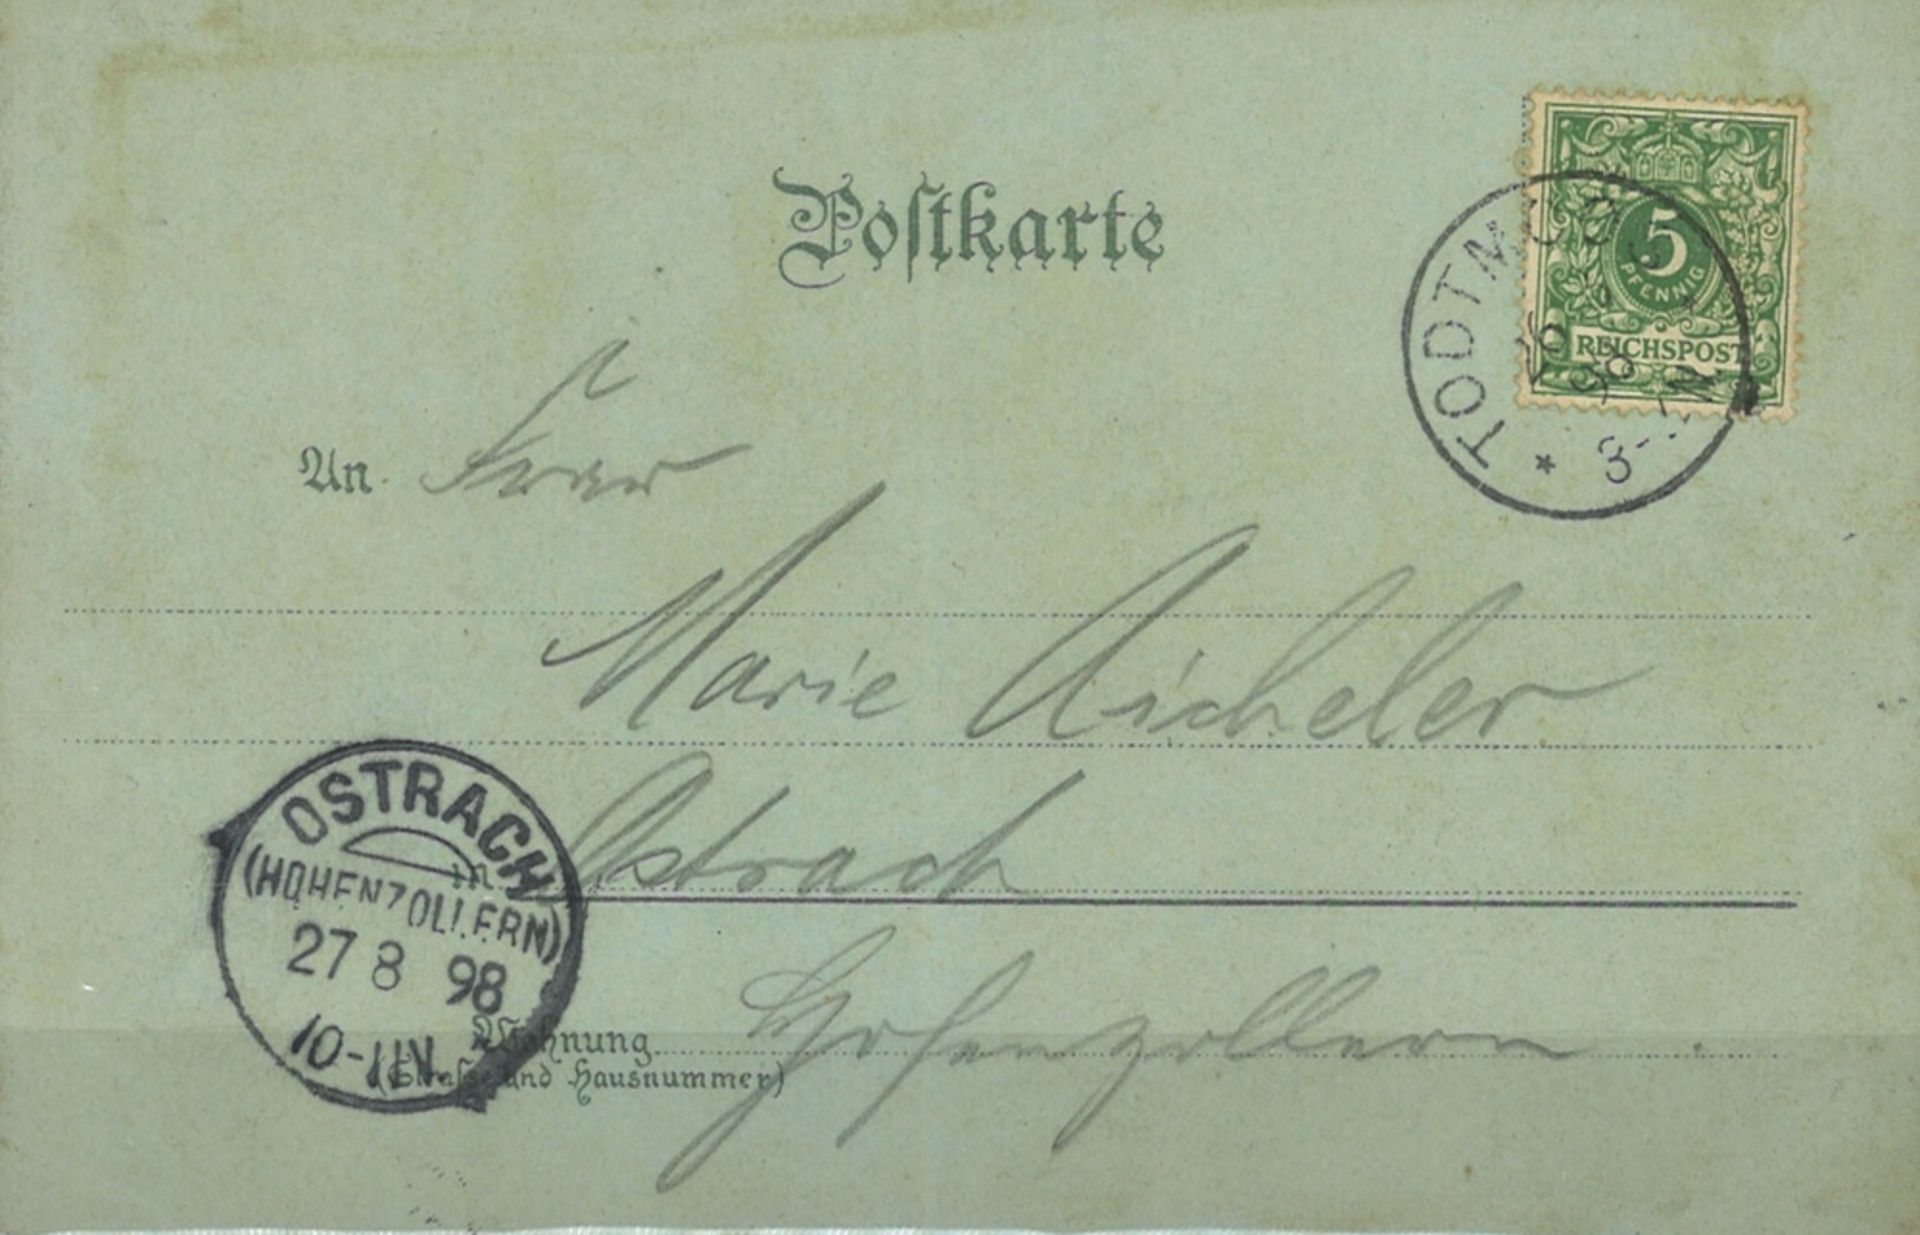 Postkarte
5
PFENNIG
REICHSPOST
TODTMOOS
26
98
3-
An Frau
Marie Aicheler
OSTRACH
(HOHENZOLLERN)
27 8 98
10-11N.
in Ostrach
Wohnung Hohenzollern
(Strasse und Hausnummer)